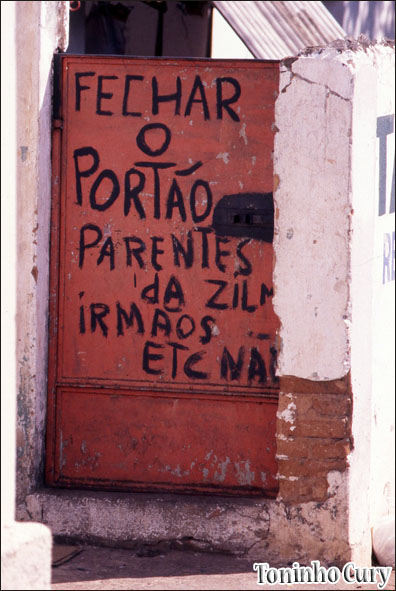 FECHAR
O
PORTÃO
PARENTES
DA ZIL
IRMÃOS
ETC NÃO
Toninho Cury